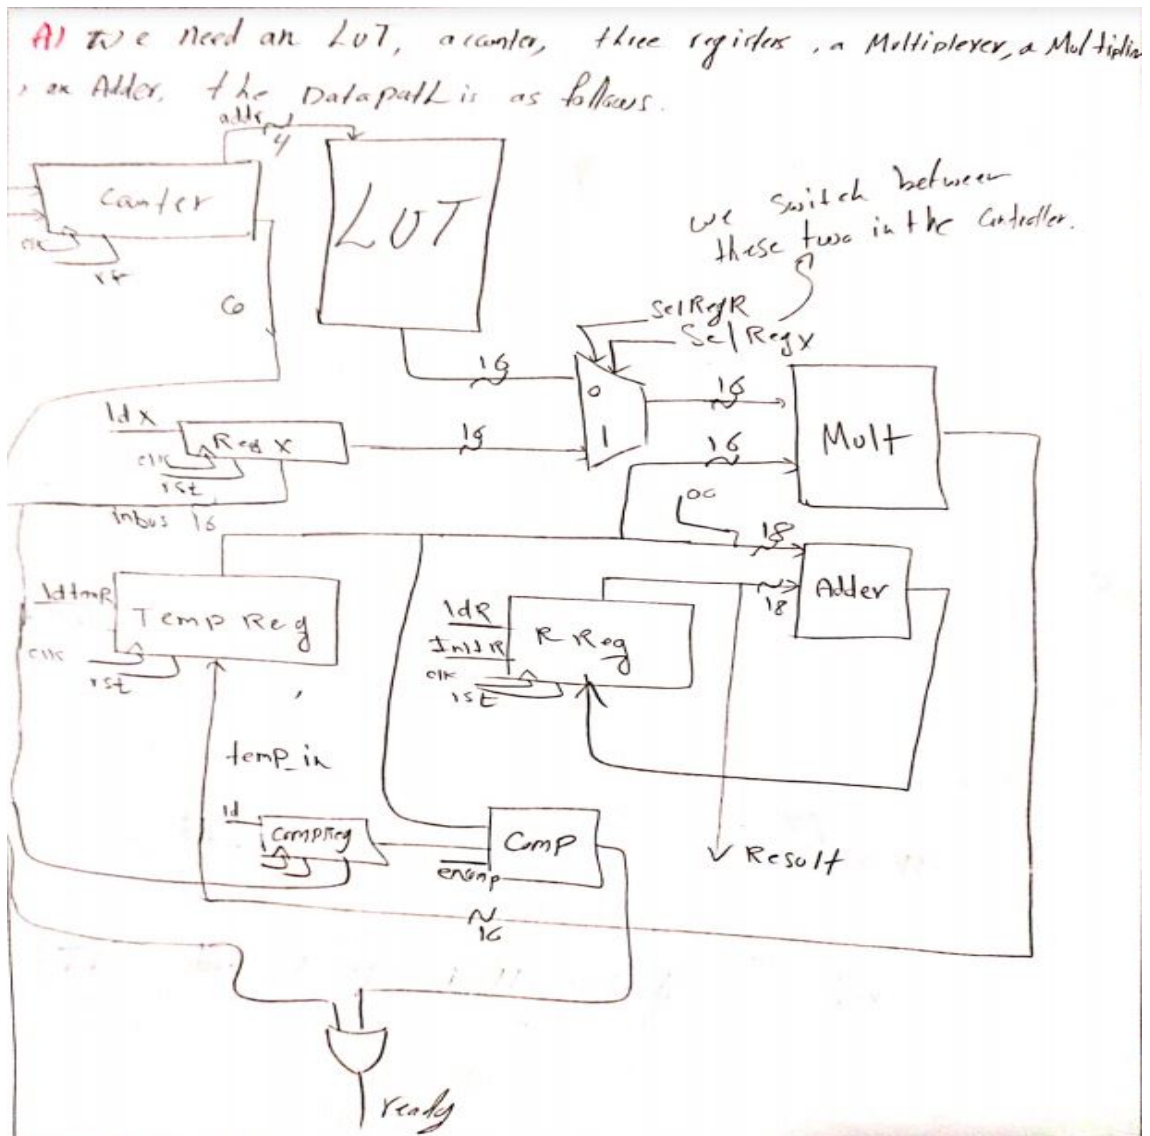 A) we need an LUT, a counter, three registers, a Multiplexer, a Multiplie
, an Adder. the Datapath is as follows.
addr
4
Counter
clk
LUT
we switch between
these two in the Controller.
co
SelRegR
SelRegX
16
0
1
16
ldX
Reg X
clk
rst
16
16
Mult
inbus 16
00
18
18
Adder
ldtmR
Temp Reg
clk
rst
ldR
InitR
R Reg
clk
rst
temp_in
ld
CompReg
Comp
encmp
Result
16
ready